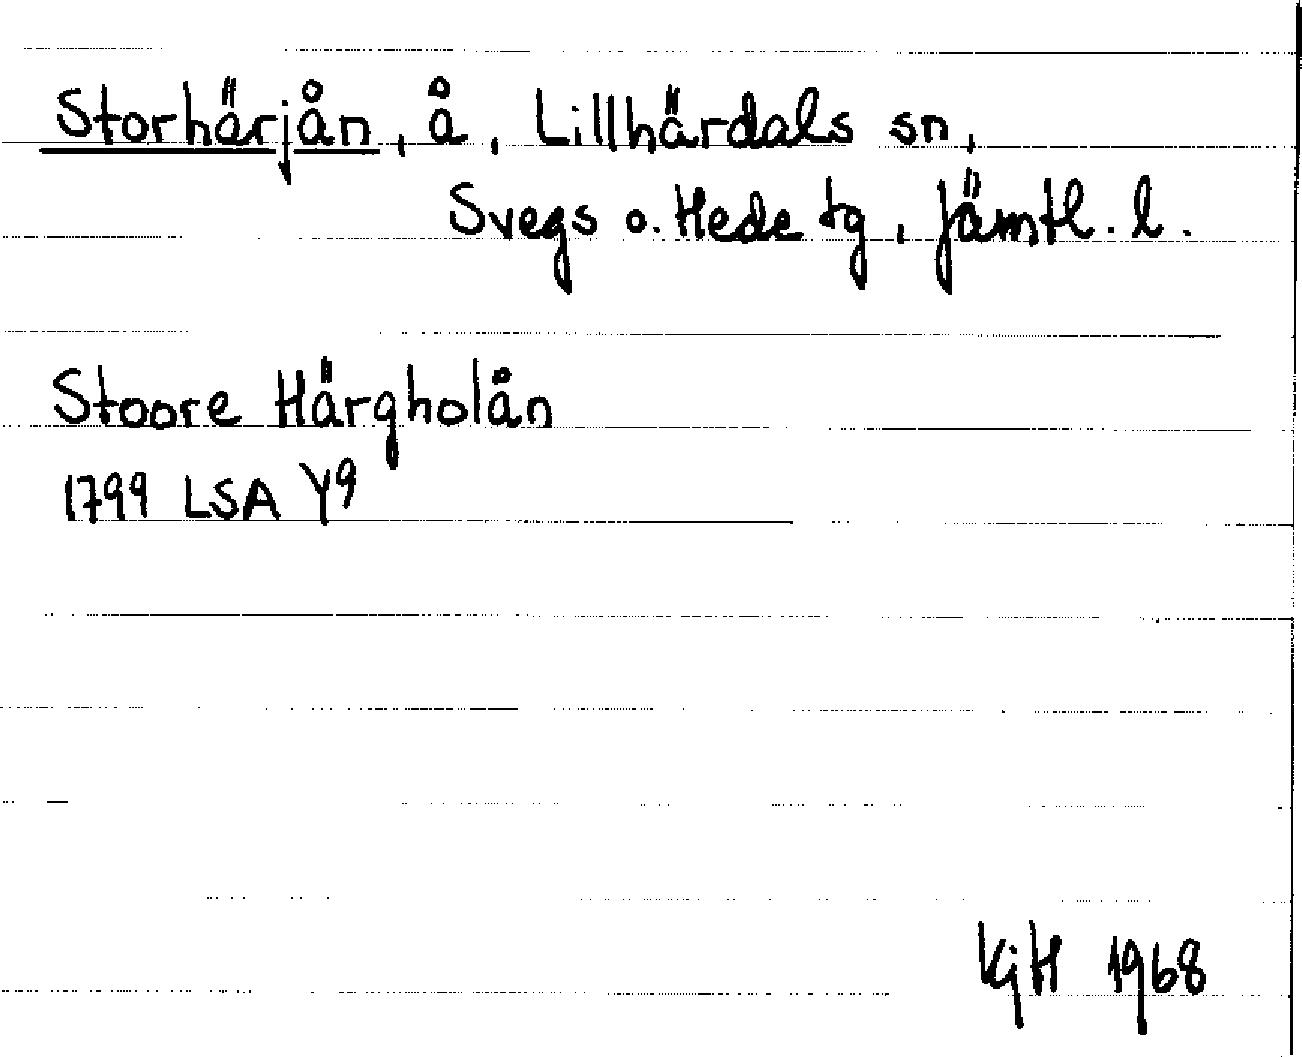 Storhärjån, å, Lillhärdals sn,
Svegs o. Hede tg, Jämtl. l.
Stoore Härgholån
1799 LSA Y9
KjH 1968